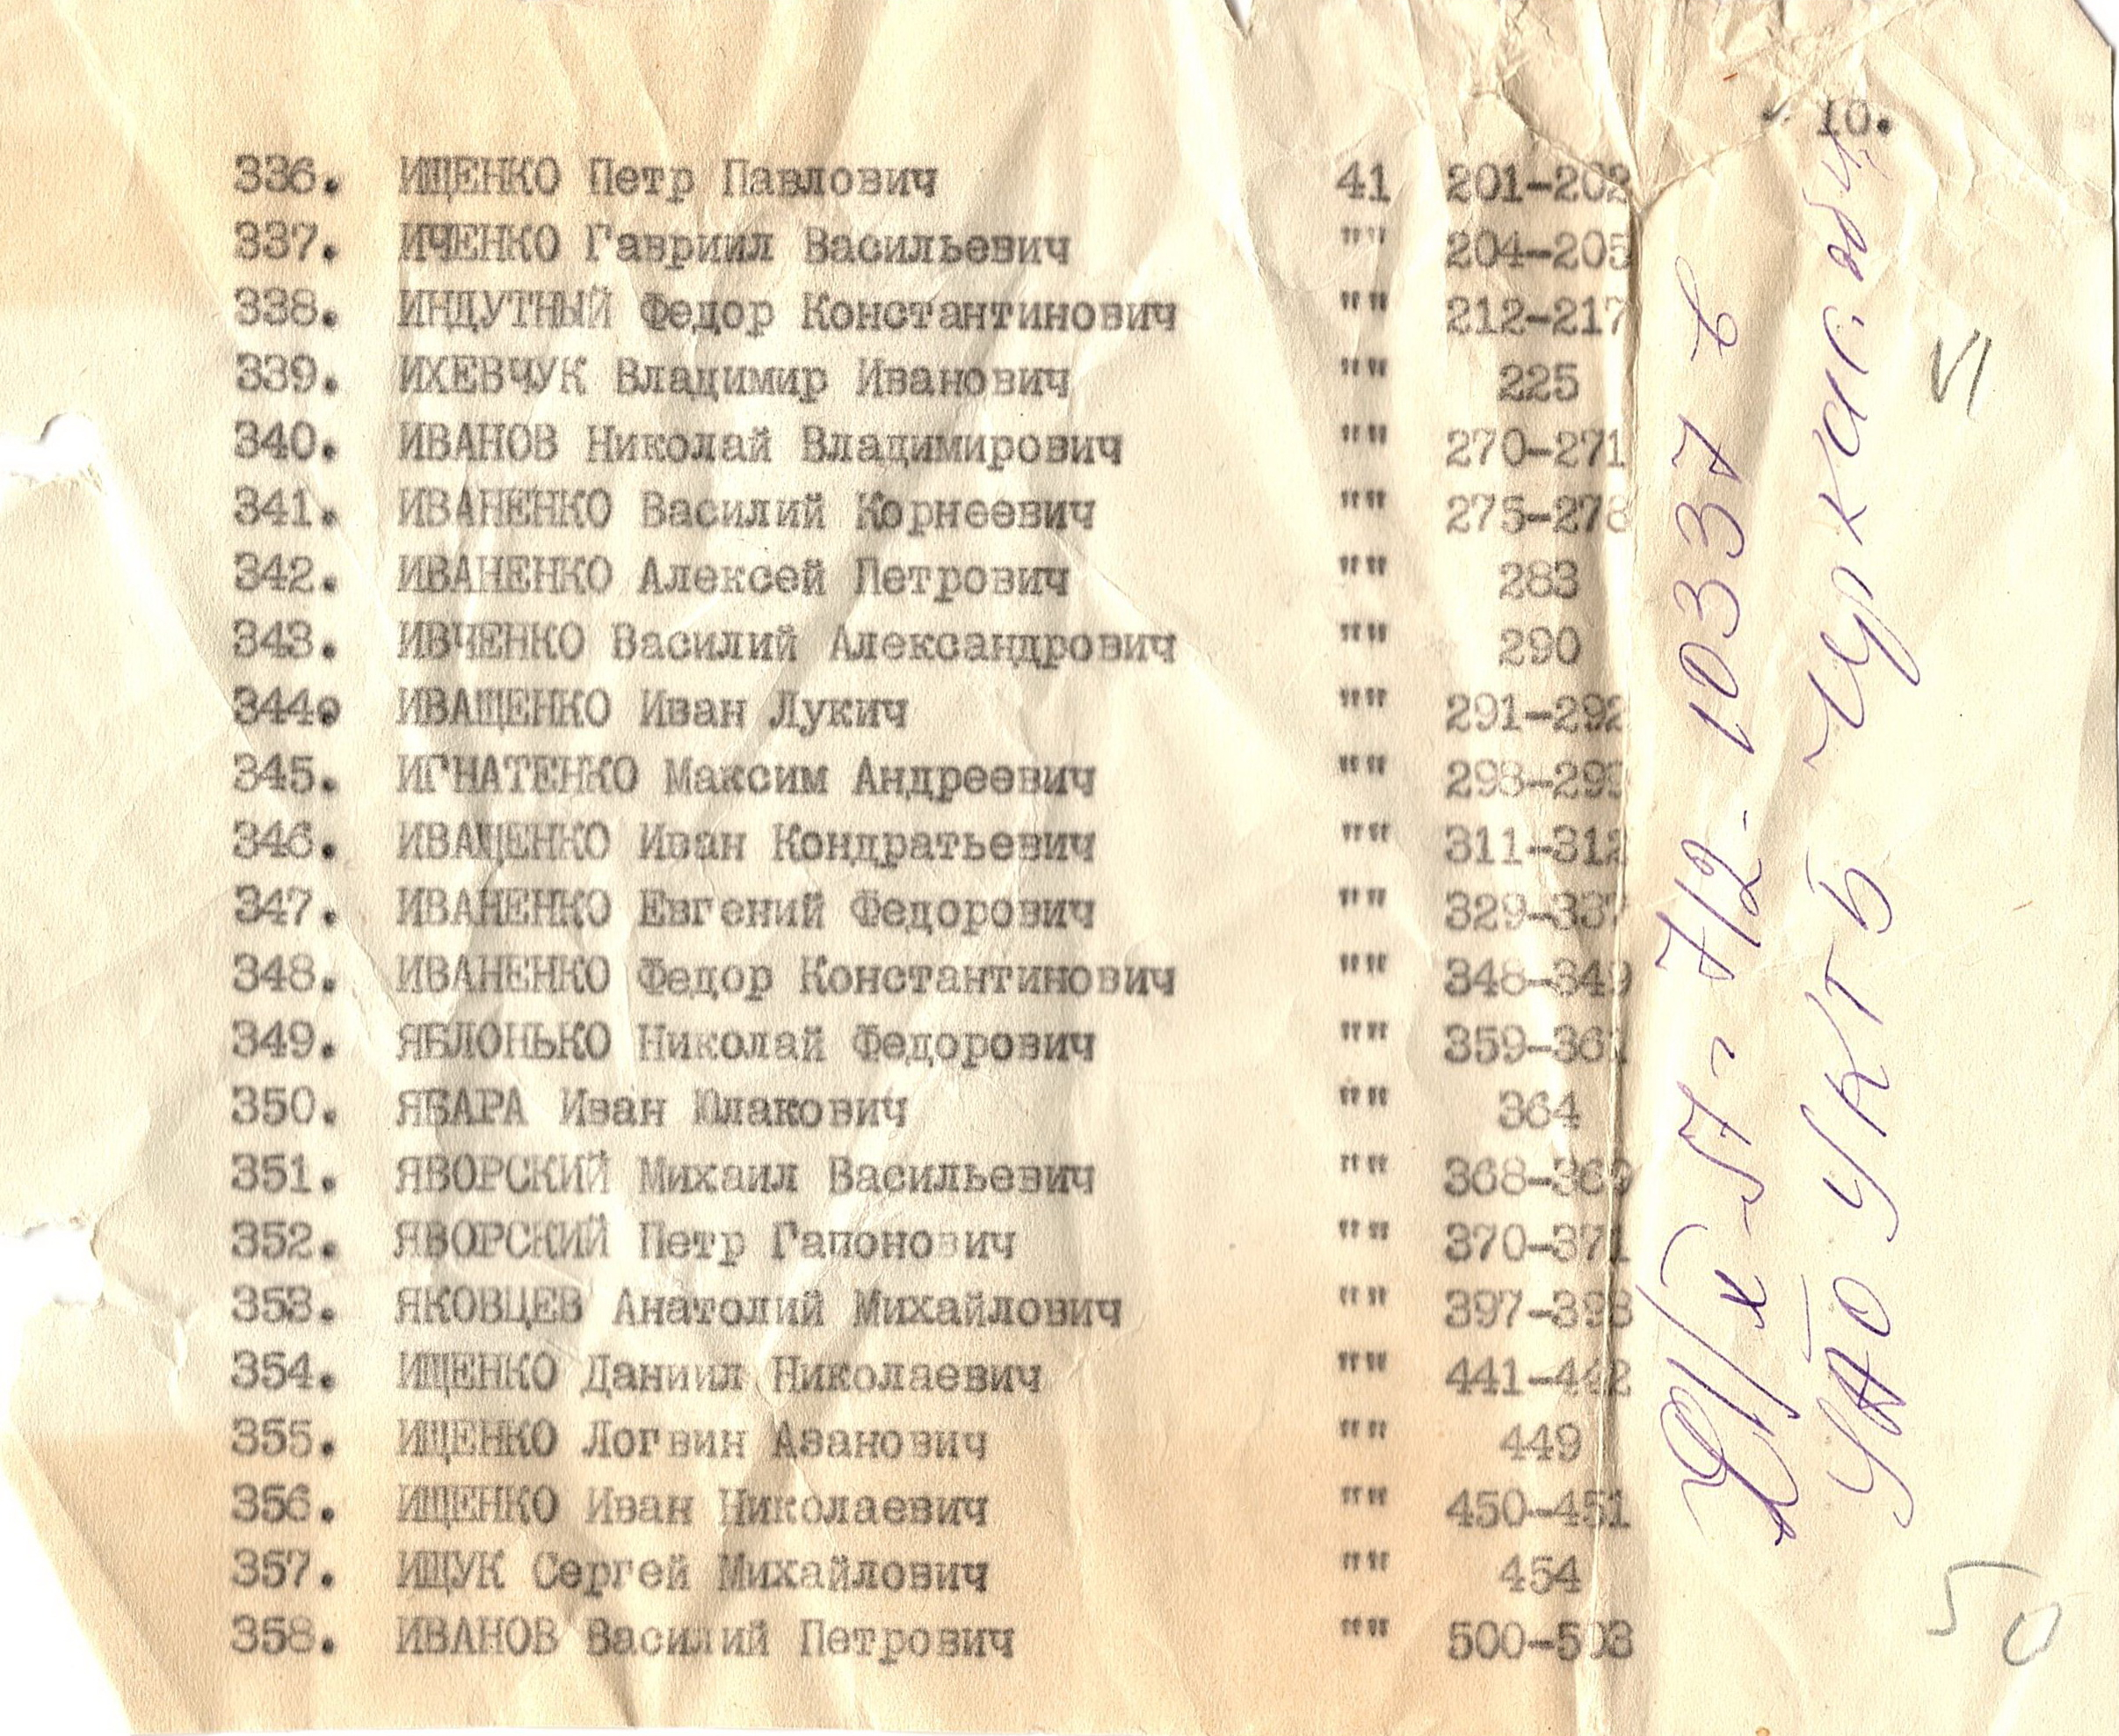 10.
336. ИЩЕНКО Петр Павлович 41 201-202
337. ИЧЕНКО Гавриил Васильевич "" 204-205
338. ИНДУТНЫЙ Федор Константинович "" 212-217
339. ИХЕВЧУК Владимир Иванович "" 225
340. ИВАНОВ Николай Владимирович "" 270-271
341. ИВАНЕНКО Василий Корнеевич "" 275-278
342. ИВАНЕНКО Алексей Петрович "" 283
343. ИВЧЕНКО Василий Александрович "" 290
344. ИВАЩЕНКО Иван Лукич "" 291-292
345. ИГНАТЕНКО Максим Андреевич "" 298-299
346. ИВАЩЕНКО Иван Кондратьевич "" 311-312
347. ИВАНЕНКО Евгений Федорович "" 329-337
348. ИВАНЕНКО Федор Константинович "" 348-349
349. ЯБЛОНЬКО Николай Федорович ""
350. ЯБАРА Иван Юлакович "" 364
351. ЯВОРСКИЙ Михаил Васильевич "" 368-369
352. ЯВОРСКИЙ Петр Гапонович "" 370-371
353. ЯКОВЦЕВ Анатолий Михайлович "" 397-398
354. ИЩЕНКО Даниил Николаевич "" 441-442
355. ИЩЕНКО Логвин Азанович "" 449
356. ИЩЕНКО Иван Николаевич "" 450-451
357. ИЩУК Сергей Михайлович "" 454
358. ИВАНОВ Василий Петрович "" 500-503
7/2-10337 в
УАО УКГБ Черкас. обл.
VI
50